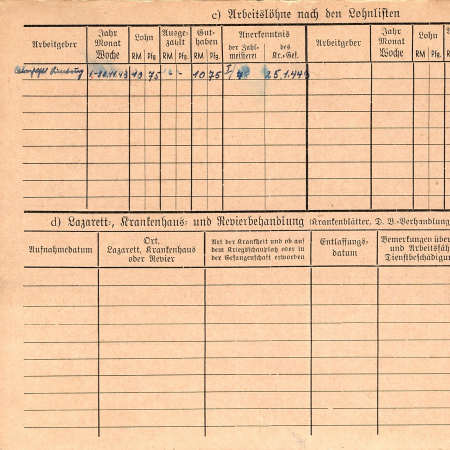 c) Arbeitslöhne nach den Lohnlisten
Arbeitgeber
Jahr
Monat
Woche
Lohn
RM Pfg.
Ausge-
zahlt
RM Pfg.
Gut-
haben
RM Pfg.
Anerkenntnis
der Zahl-
meisterei
des
Kr.-Gef.
Arbeitgeber
Jahr
Monat
Woche
Lohn
RM Pfg.
RM
10 75 - - 10 75 25.1.44
d) Lazarett-, Krankenhaus- und Revierbehandlung (Krankenblätter, D. B.-Verhandlung
Aufnahmedatum
Ort,
Lazarett, Krankenhaus
oder Revier
Art der Krankheit und ob auf
dem Kriegsschauplatz oder in
der Gefangenschaft erworben
Entlassungs-
datum
Bemerkungen übe
und Arbeitsfäh
Dienstbeschädigu